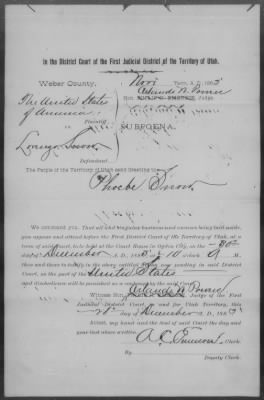 In the District Court of the First Judicial District of the Territory of Utah.
Weber County, Nov. Term, A. D. 1885
Orlando W. Powers
Hon. Judge.
The United States
of America
Plaintiff
vs.
SUBPOENA.
Lorenzo Snow
Defendant
The People of the Territory of Utah send Greeting to
Phoebe Snow
We command you, That all and singular business and excuses being laid aside,
you appear and attend before the First District Court of the Territory of Utah, at a
term of said Court, to be held at the Court Room in Ogden City, on the 30th
day of December A. D., 1885 at 10 o'clock A. M.,
then and there to testify in the above entitled cause now pending in said District
Court, on the part of the United States
and disobedience will be punished as a contempt by the said Court.
Witness Hon. Orlando W. Powers Judge of the First
Judicial District Court in and for the Territory of Utah, this
day of December A. D. 1885
Attest my hand and the seal of said Court the day and
year last above written.
A. C. Emerson Clerk.
By
Deputy Clerk.